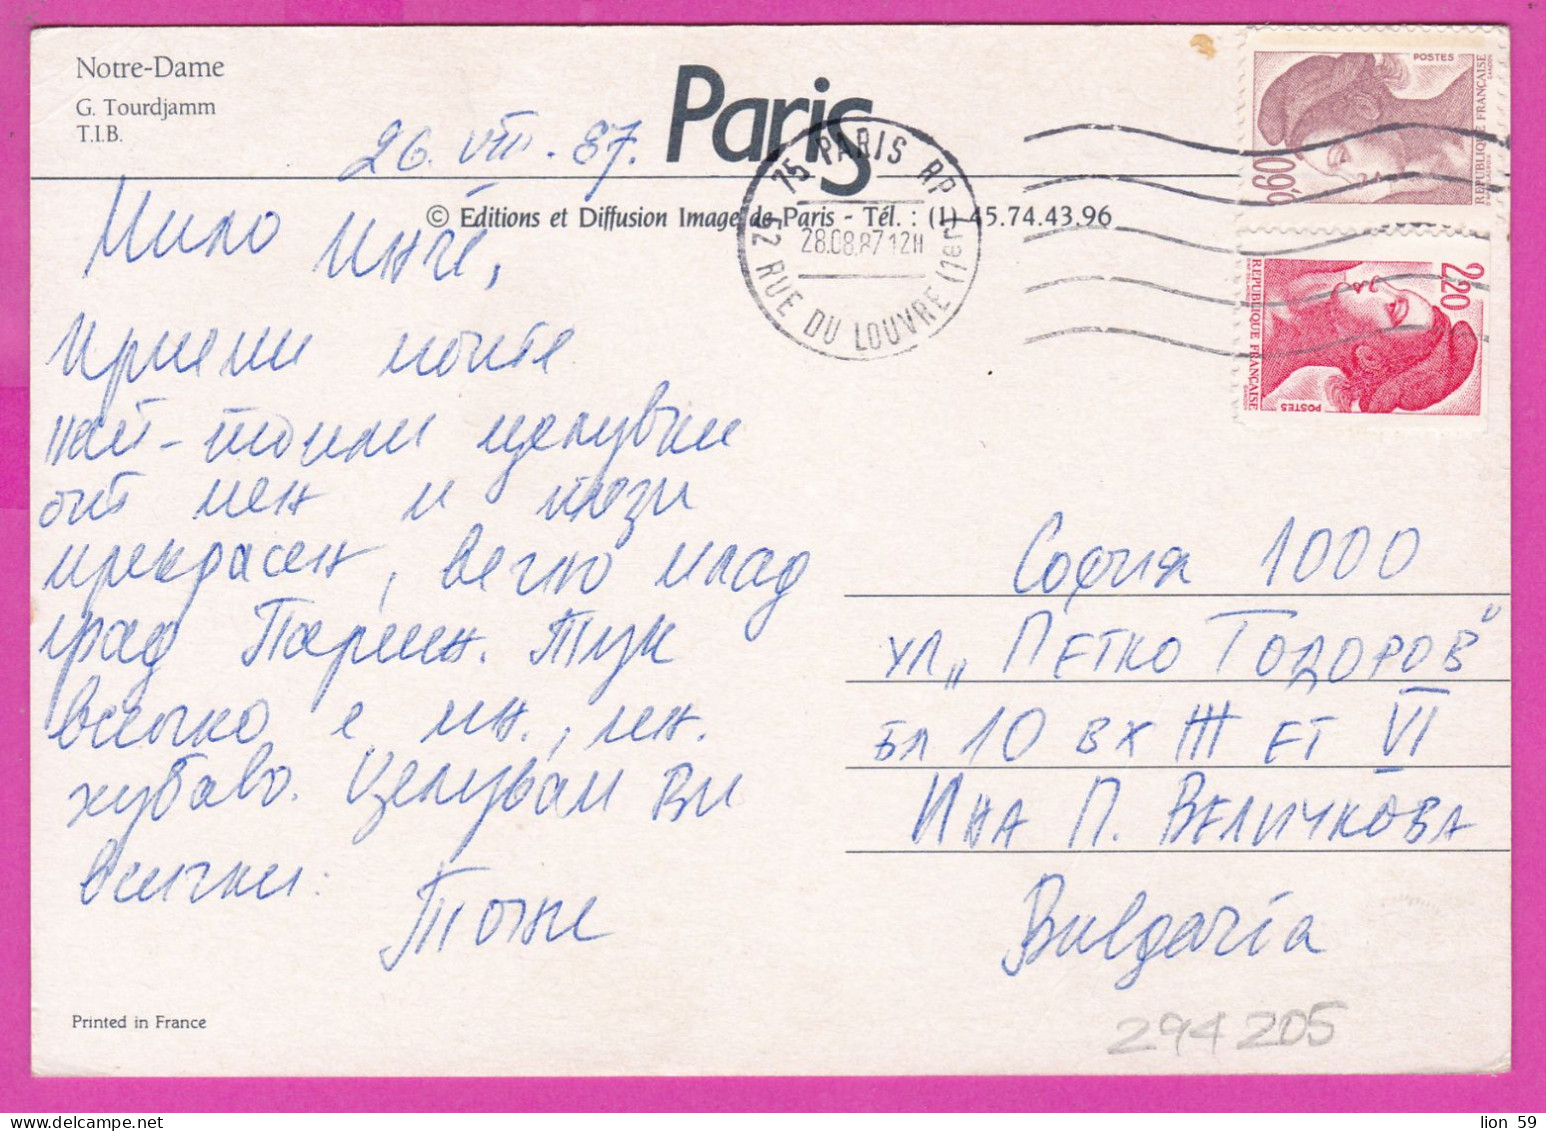 Notre-Dame
G. Tourdjamm
T.I.B.
Paris
26. VIII. 87.
© Editions et Diffusion Image de Paris - Tél. : (1) 45.74.43.96
75 PARIS RP
28.08.87 12H
52 RUE DU LOUVRE (1er)
POSTES
REPUBLIQUE FRANÇAISE
0,60
2,20
REPUBLIQUE FRANÇAISE
POSTES
Мило Инче,
Приеми моите
най-топли целувки
от мен и този
прекрасен, вечно млад
град Париж. Тук
всичко е мн., мн.
хубаво. Целувам Ви
всички:
Тони
София 1000
ул „ПЕТКО ТОДОРОВ"
бл 10 ВХ Ж ЕТ VI
ИНА П. ВЕЛИЧКОВА
Bulgaria
Printed in France
294205
lion 59